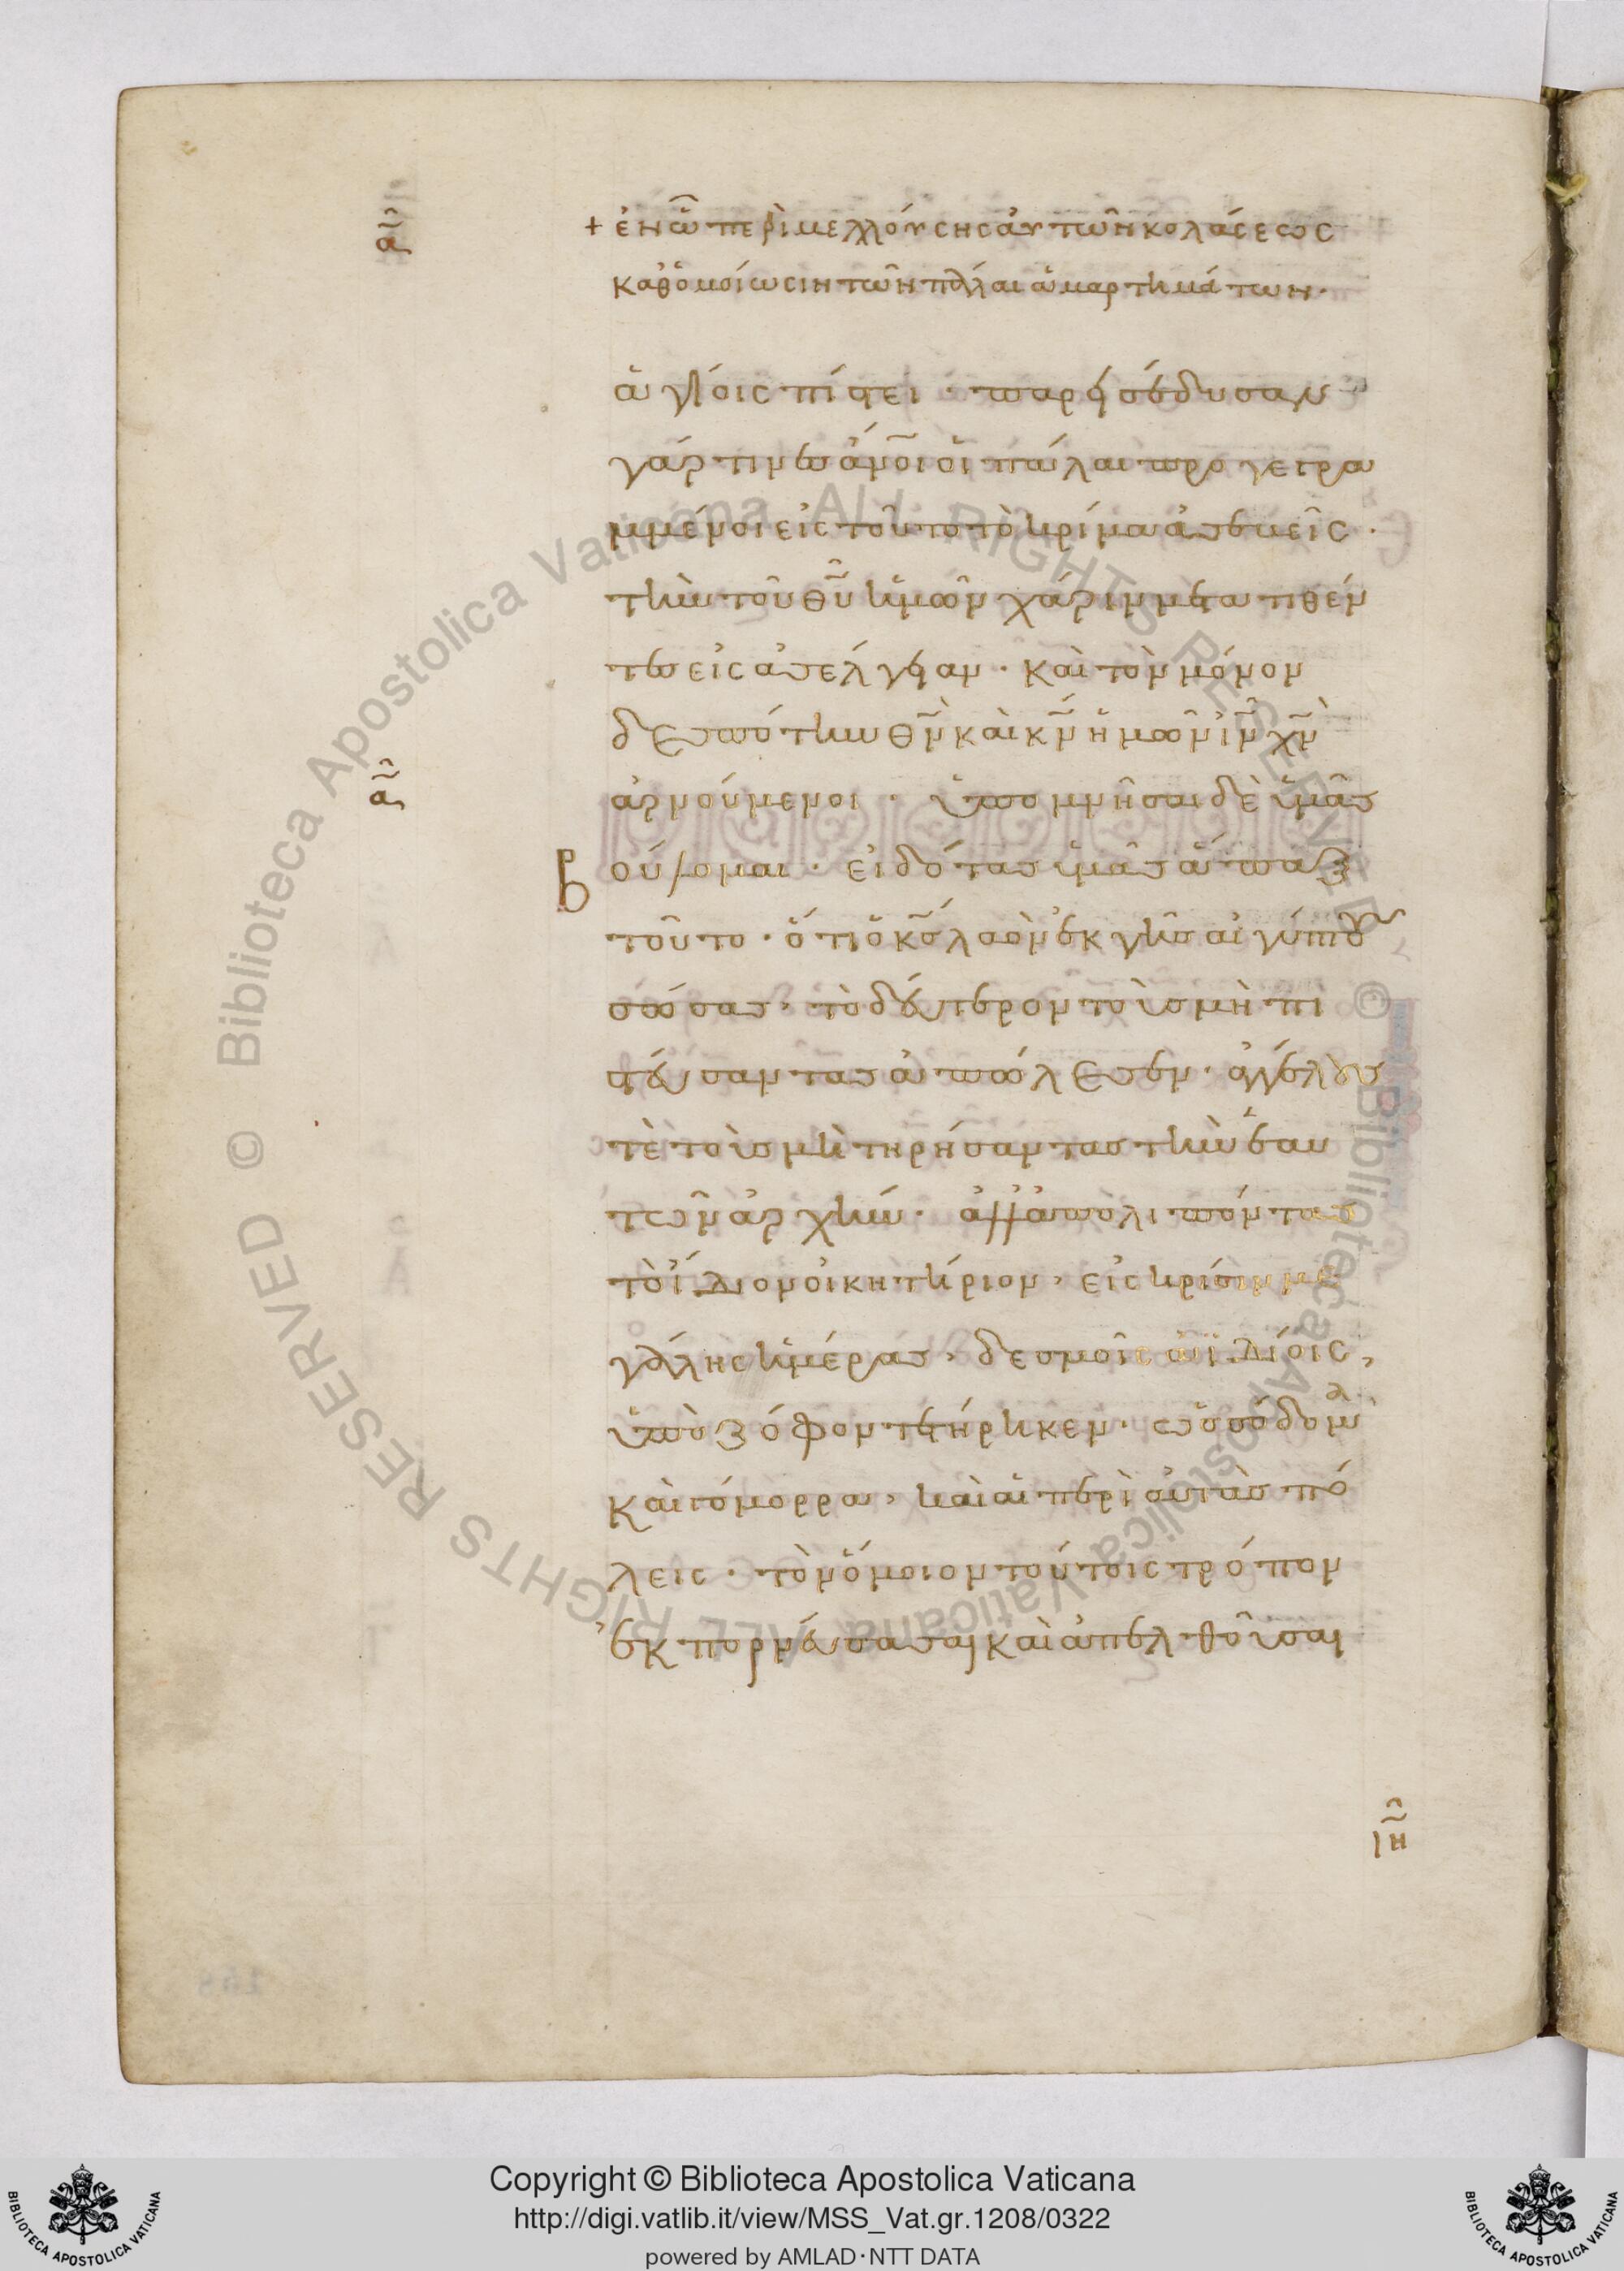 + ἐν ὧ περὶ μελλούσης αὐτῶν κολάσεως
καθ ὁμοίωσιν τῶν πάλαι ἁμαρτημάτων.
ἁγίοις πίστει. παρεισέδυσαν
γάρ τινες ἄνοι οἱ πάλαι προγεγρα
μμένοι εἰς τοῦτο τὸ κρίμα ἀσεβεῖς.
τὴν τοῦ θυ ἡμῶν χάριν μετατιθέν
τες εἰς ἀσέλγειαν. καὶ τὸν μόνον
δεσπότην θν καὶ κν ἡμῶν ιν χν
ἀρνούμενοι. ὑπομνῆσαι δὲ ὑμᾶς
βούλομαι. εἰδότας ὑμᾶς ἅπαξ
τοῦτο. ὅτι ὁ κς λαὸν ἐκ γῆς αἰγύπτου
σώσας, τὸ δεύτερον τοὺς μὴ πι
στεύσαντας ἀπώλεσεν. ἀγγέλους
τὲ τοὺς μὴ τηρήσαντας τὴν ἑαυ
τῶν ἀρχήν. ἀλλ ἀπολιπόντας
τὸ ἴδιον οἰκητήριον, εἰς κρίσιν με
γάλης ἡμέρας, δεσμοῖς ἀϊδίοις,
ὑπὸ ζόφον τετήρηκεν. ὡς σόδομα
καὶ γόμορρα, καὶ αἱ περὶ αὐτὰς πό
λεις. τὸν ὅμοιον τούτοις τρόπον
ἐκπορνεύσασαι καὶ ἀπελθοῦσαι
ιη
Copyright © Biblioteca Apostolica Vaticana
http://digi.vatlib.it/view/MSS_Vat.gr.1208/0322
powered by AMLAD·NTT DATA
BIBLIOTECA APOSTOLICA VATICANA
BIBLIOTECA APOSTOLICA VATICANA
© Biblioteca Apostolica Vaticana ALL RIGHTS RESERVED
© Biblioteca Apostolica Vaticana ALL RIGHTS RESERVED